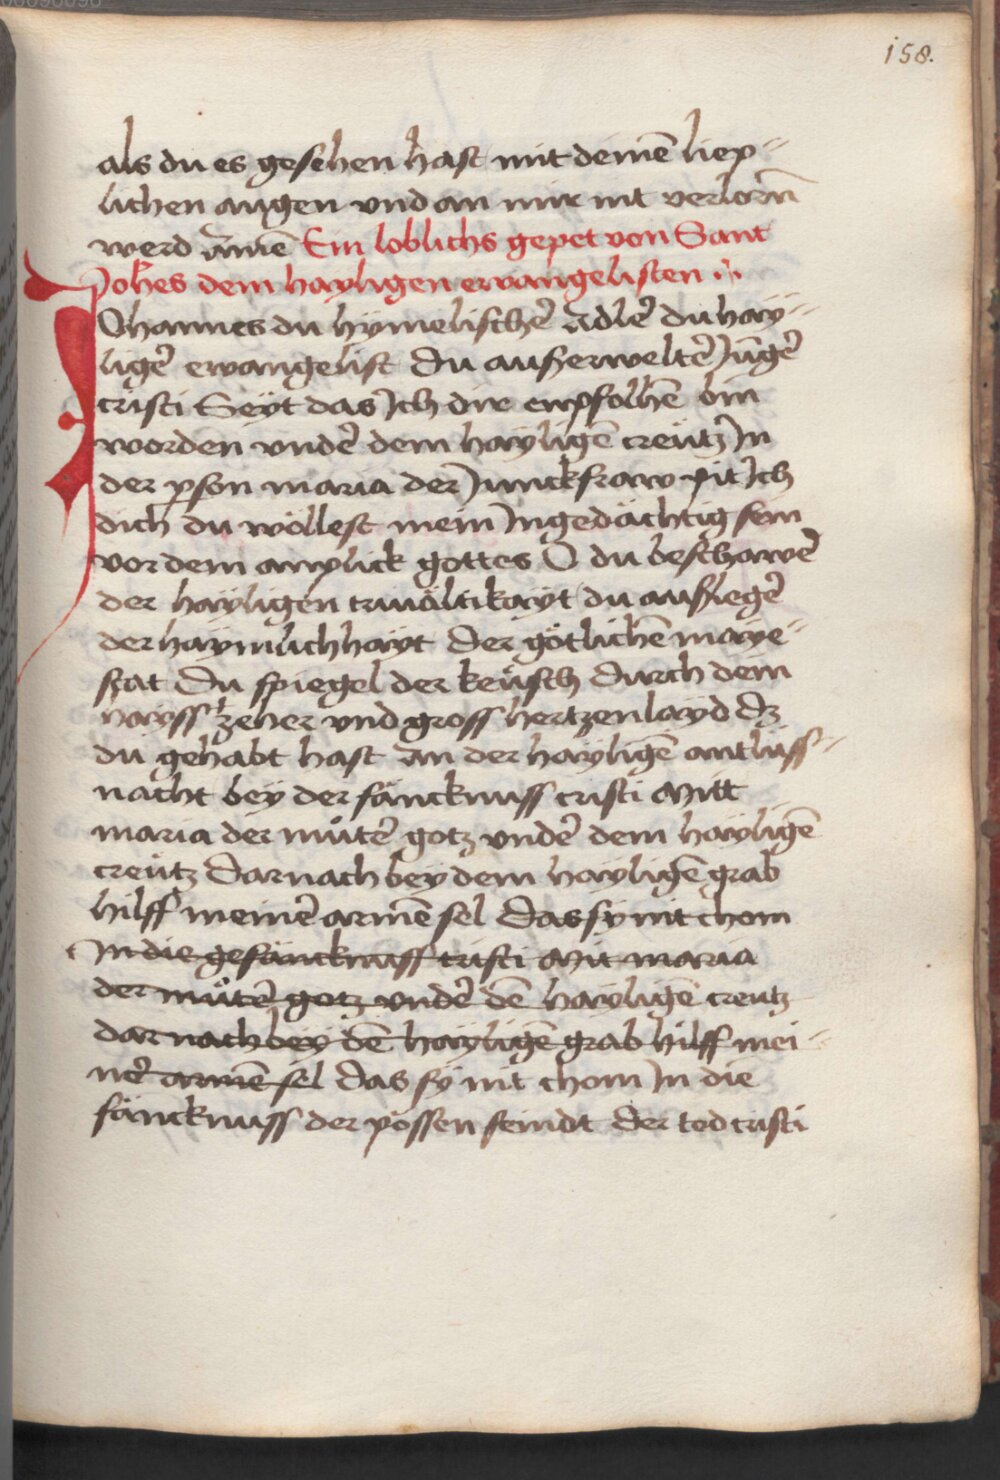 158.
als du es gesehen hast mit deinē liep-
lichen augen vnd an mir nit verlorn̄
werd āmen Ein loblichs gepet von Sant
Joh̄es dem hayligen ewangelisten
Johannes du hymelischer̄ Adler̄ du haÿ-
liger̄ ewangelist du außerwelter̄ Jūger̄
cristi Seÿt das Ich dir enpfolhē bin
worden vnder̄ dem haÿligē creütz In
der pson maria der Junckfraw pit Ich
dich du wöllest mein Ingedächtig sein
vor dem anplick gottes O du beschawer̄
der haÿligen triuältikaÿt du außleger̄
der haÿmlichhaÿt der götlichē maÿe-
stat Du spiegel der keüsch durch dein
hayss zeher vnd gross hertzenlayd dz
du gehabt hast an der hayligē antlass-
nacht beÿ der fäncknuss cristi Mitt
maria der muͦter̄ gotz vnder̄ dem haÿligē
creütz Darnach beÿ dem haÿligē grab
hilff meiner̄ armē sel Das sÿ nit chom
In die gefäncknuss cristi Mit maria
der muͦter̄ gotz vnder̄ dē haÿligē creutz
dar nach beÿ dē haÿligē grab hilff mei-
ner̄ armē sel das sÿ nit chom In die
fäncknuss der possen feindt der tod cristi